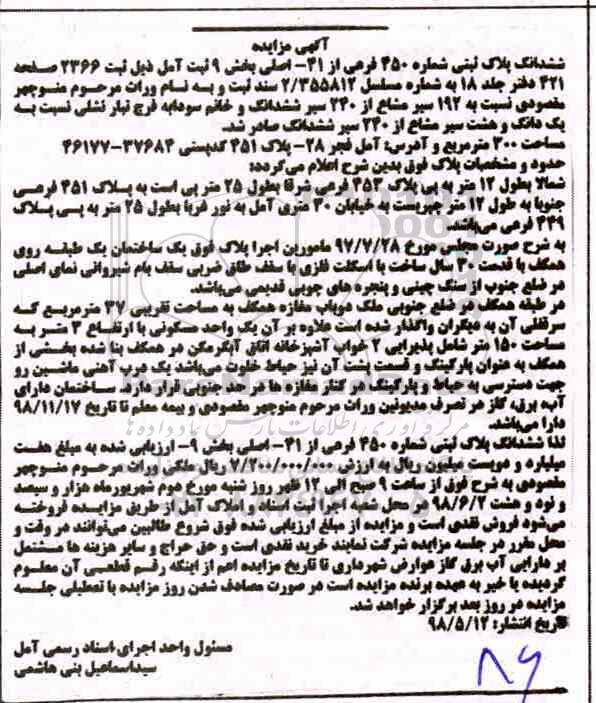 آگهی مزایده
ششدانگ پلاک ثبتی شماره ۴۵۰ فرعی از ۴۱- اصلی بخش ۹ ثبت آمل ذیل ثبت ۲۳۶۶ صفحه
۴۲۱ دفتر جلد ۱۸ به شماره مسلسل ۲/۳۵۵۸۱۲ سند ثبت و به نام وراث مرحوم منوچهر
مقصودی نسبت به ۱۹۲ سیر مشاع از ۲۴۰ سیر ششدانگ و خانم سودابه فرح تبار نشلی نسبت به
یک دانگ و هشت سیر مشاع از ۲۴۰ سیر ششدانگ صادر شد.
مساحت ۳۰۰ مترمربع و آدرس: آمل فجر ۲۸- پلاک ۴۵۱ کدپستی ۳۷۶۸۴-۴۶۱۷۷
حدود و مشخصات پلاک فوق بدین شرح اعلام می‌گردد:
شمالا بطول ۱۲ متر به پی پلاک ۴۵۳ فرعی شرقا بطول ۲۵ متر پی است به پلاک ۴۵۱ فرعی
جنوبا به طول ۱۲ متر چهریست به خیابان ۳۰ متری آمل به نور غربا بطول ۲۵ متر به پی پلاک
۴۴۹ فرعی می‌باشد.
به شرح صورت مجلس مورخ ۹۷/۷/۲۸ مامورین اجرا پلاک فوق یک ساختمان یک طبقه روی
همکف با قدمت ۳۰ سال ساخت با اسکلت فلزی با سقف طاق ضربی سقف بام شیروانی نمای اصلی
در ضلع جنوب از سنگ چینی و پنجره های چوبی قدیمی می‌باشد.
در طبقه همکف در ضلع جنوبی ملک دوباب مغازه همکف به مساحت تقریبی ۳۷ مترمربع که
سرقفلی آن به دیگران واگذار شده است علاوه بر آن یک واحد مسکونی با ارتفاع ۳ متر به
مساحت ۱۵۰ متر شامل پذیرایی ۲ خواب آشپزخانه اتاق آبگرمکن در همکف بنا شده بخشی از
همکف به عنوان پارکینگ و قسمت پشت آن نیز حیاط خلوت می‌باشد یک درب آهنی ماشین رو
جهت دسترسی به حیاط و پارکینگ در کنار مغازه ها در ضلع جنوبی قرار دارد. ساختمان دارای
آب، برق، گاز در تصرف مدیونین وراث مرحوم منوچهر مقصودی و بیمه معلم تا تاریخ ۹۸/۱۱/۱۷
دارا می‌باشد.
لذا ششدانگ پلاک ثبتی شماره ۴۵۰ فرعی از ۴۱- اصلی بخش ۹- ارزیابی شده به مبلغ هفت
میلیارد و دویست میلیون ریال به ارزش ۷/۲۰۰/۰۰۰/۰۰۰ ریال ملکی وراث مرحوم منوچهر
مقصودی به شرح فوق از ساعت ۹ صبح الی ۱۲ ظهر روز شنبه مورخ دوم شهریورماه هزار و سیصد
و نود و هشت ۹۸/۶/۲ در محل شعبه اجرا ثبت اسناد و املاک آمل از طریق مزایده فروخته
می‌شود فروش نقدی است و مزایده از مبلغ ارزیابی شده فوق شروع طالبین می‌توانند در وقت و
محل مقرر در جلسه مزایده شرکت نمایند خرید نقدی است و حق حراج و سایر هزینه ها مشتمل
بر دارایی آب برق گاز عوارض شهرداری تا تاریخ مزایده اعم از اینکه رقم قطعی آن معلوم
گردیده یا خیر به عهده برنده مزایده است در صورت مصادف شدن روز مزایده با تعطیلی جلسه
مزایده در روز بعد برگزار خواهد شد.
تاریخ انتشار: ۹۸/۵/۱۲
مسئول واحد اجرای اسناد رسمی آمل
سیداسماعیل بنی هاشمی